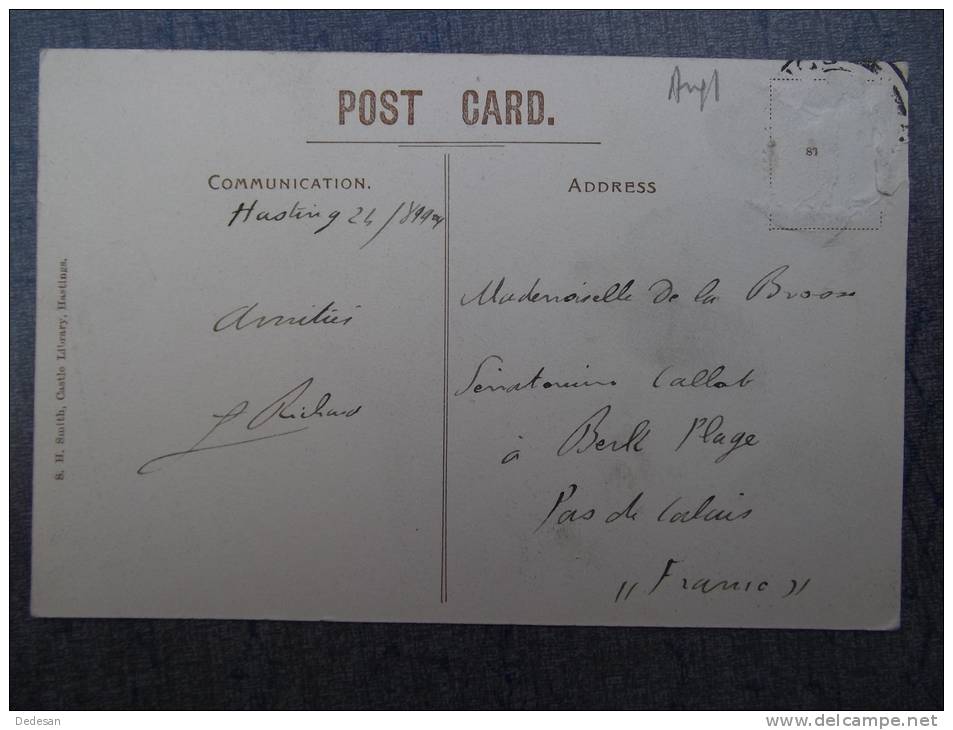 POST CARD.
Angl
87
COMMUNICATION.
ADDRESS
Hasting 24/8
Amitiés
Richard
Mademoiselle De la
Callot
à Berk Plage
Pas de Calais
"France"
S. H. Smith, Castle Library, Hastings.
Dedesan
www.delcampe.net